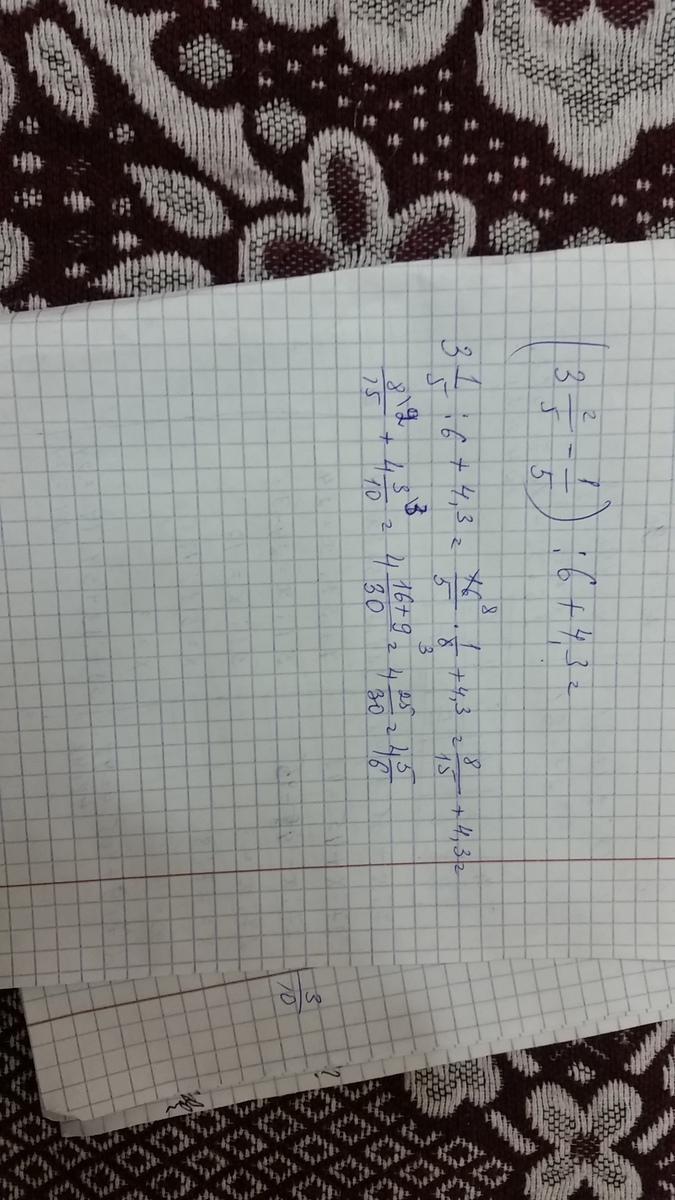 (3 2/5 - 1/5) : 6 + 4,3 =
3 1/5 : 6 + 4,3 = 16 8/5 · 1/6 3 + 4,3 = 8/15 + 4,3 =
8\2/15 + 4 3\3/10 = 4 16+9/30 = 4 25/30 = 4 5/6
3/10